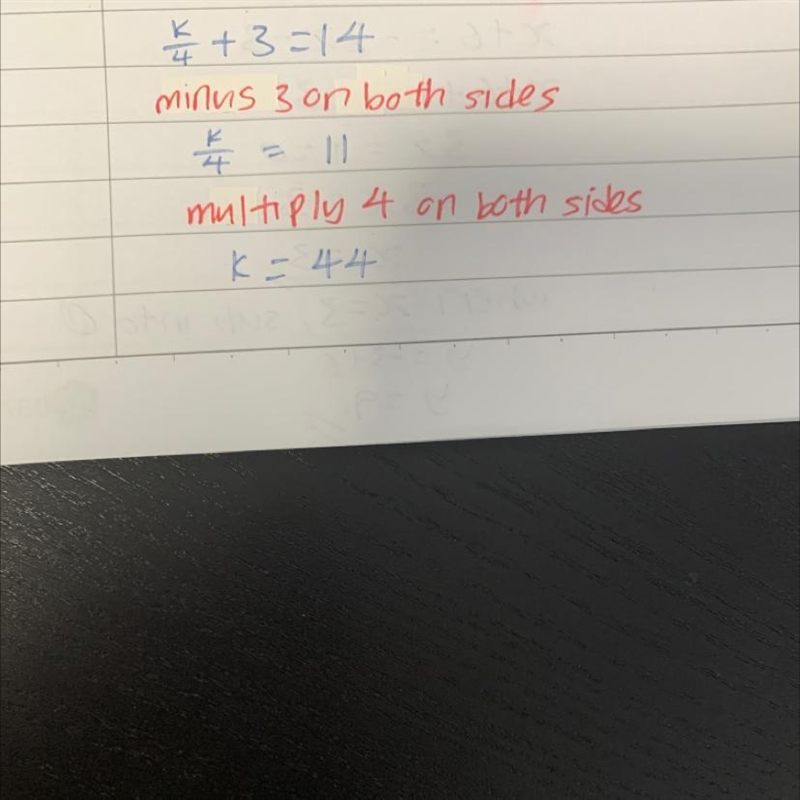 k/4 + 3 = 14
minus 3 on both sides
k/4 = 11
multiply 4 on both sides
k = 44